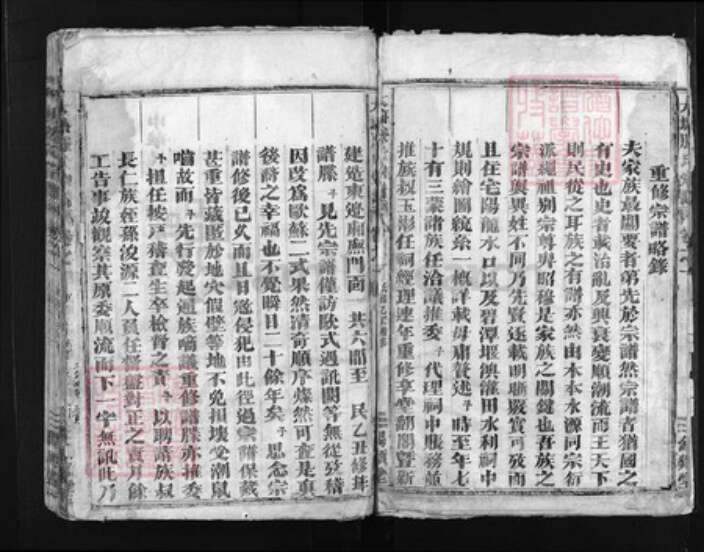 重修宗譜略錄
夫家族最關要者第先於宗譜然宗譜者猶國之
有史也史者載治亂及興衰變順潮流而王天下
則民從之耳族之有譜亦然由木本水源同宗衍
派繩祖別宗尊與昭穆是家族之關鍵也吾族之
宗譜與異姓不同乃先賢迭載明晰嚴實可攷南
且住宅陽龍水口以及碧潭堰澳灌田水利祠中
規則繪圖統系一概詳載毋庸贅述予時至年七
十有三蒙諸族任洽議推委予代理祠中服務並
推族叔玉彬任祠經理連年重修享堂翻閣暨新
建造東邊廂廡門面一共六間至民乙丑修
譜牒予見先宗譜僅訪歐式過訊閣等無從攷稽
因改為歐蘇二式果然清奇順序燦然可查是
後裔之幸福也不覺瞬目二十餘年矣予思念宗
譜修後已久而且日寇侵犯由此徑過宗譜保藏
甚重皆藏匿於地穴假壁等地不免損壞受潮鼠
嚙故而予先行發起通族嗬議重修譜牒亦推委
予担任按戶稽查生卒檢督之責予以聘請族叔
長仁族姪孫浚源二人員任督盤對正之責月餘
工告事竣觀察其原委順流而下一字無訛此乃